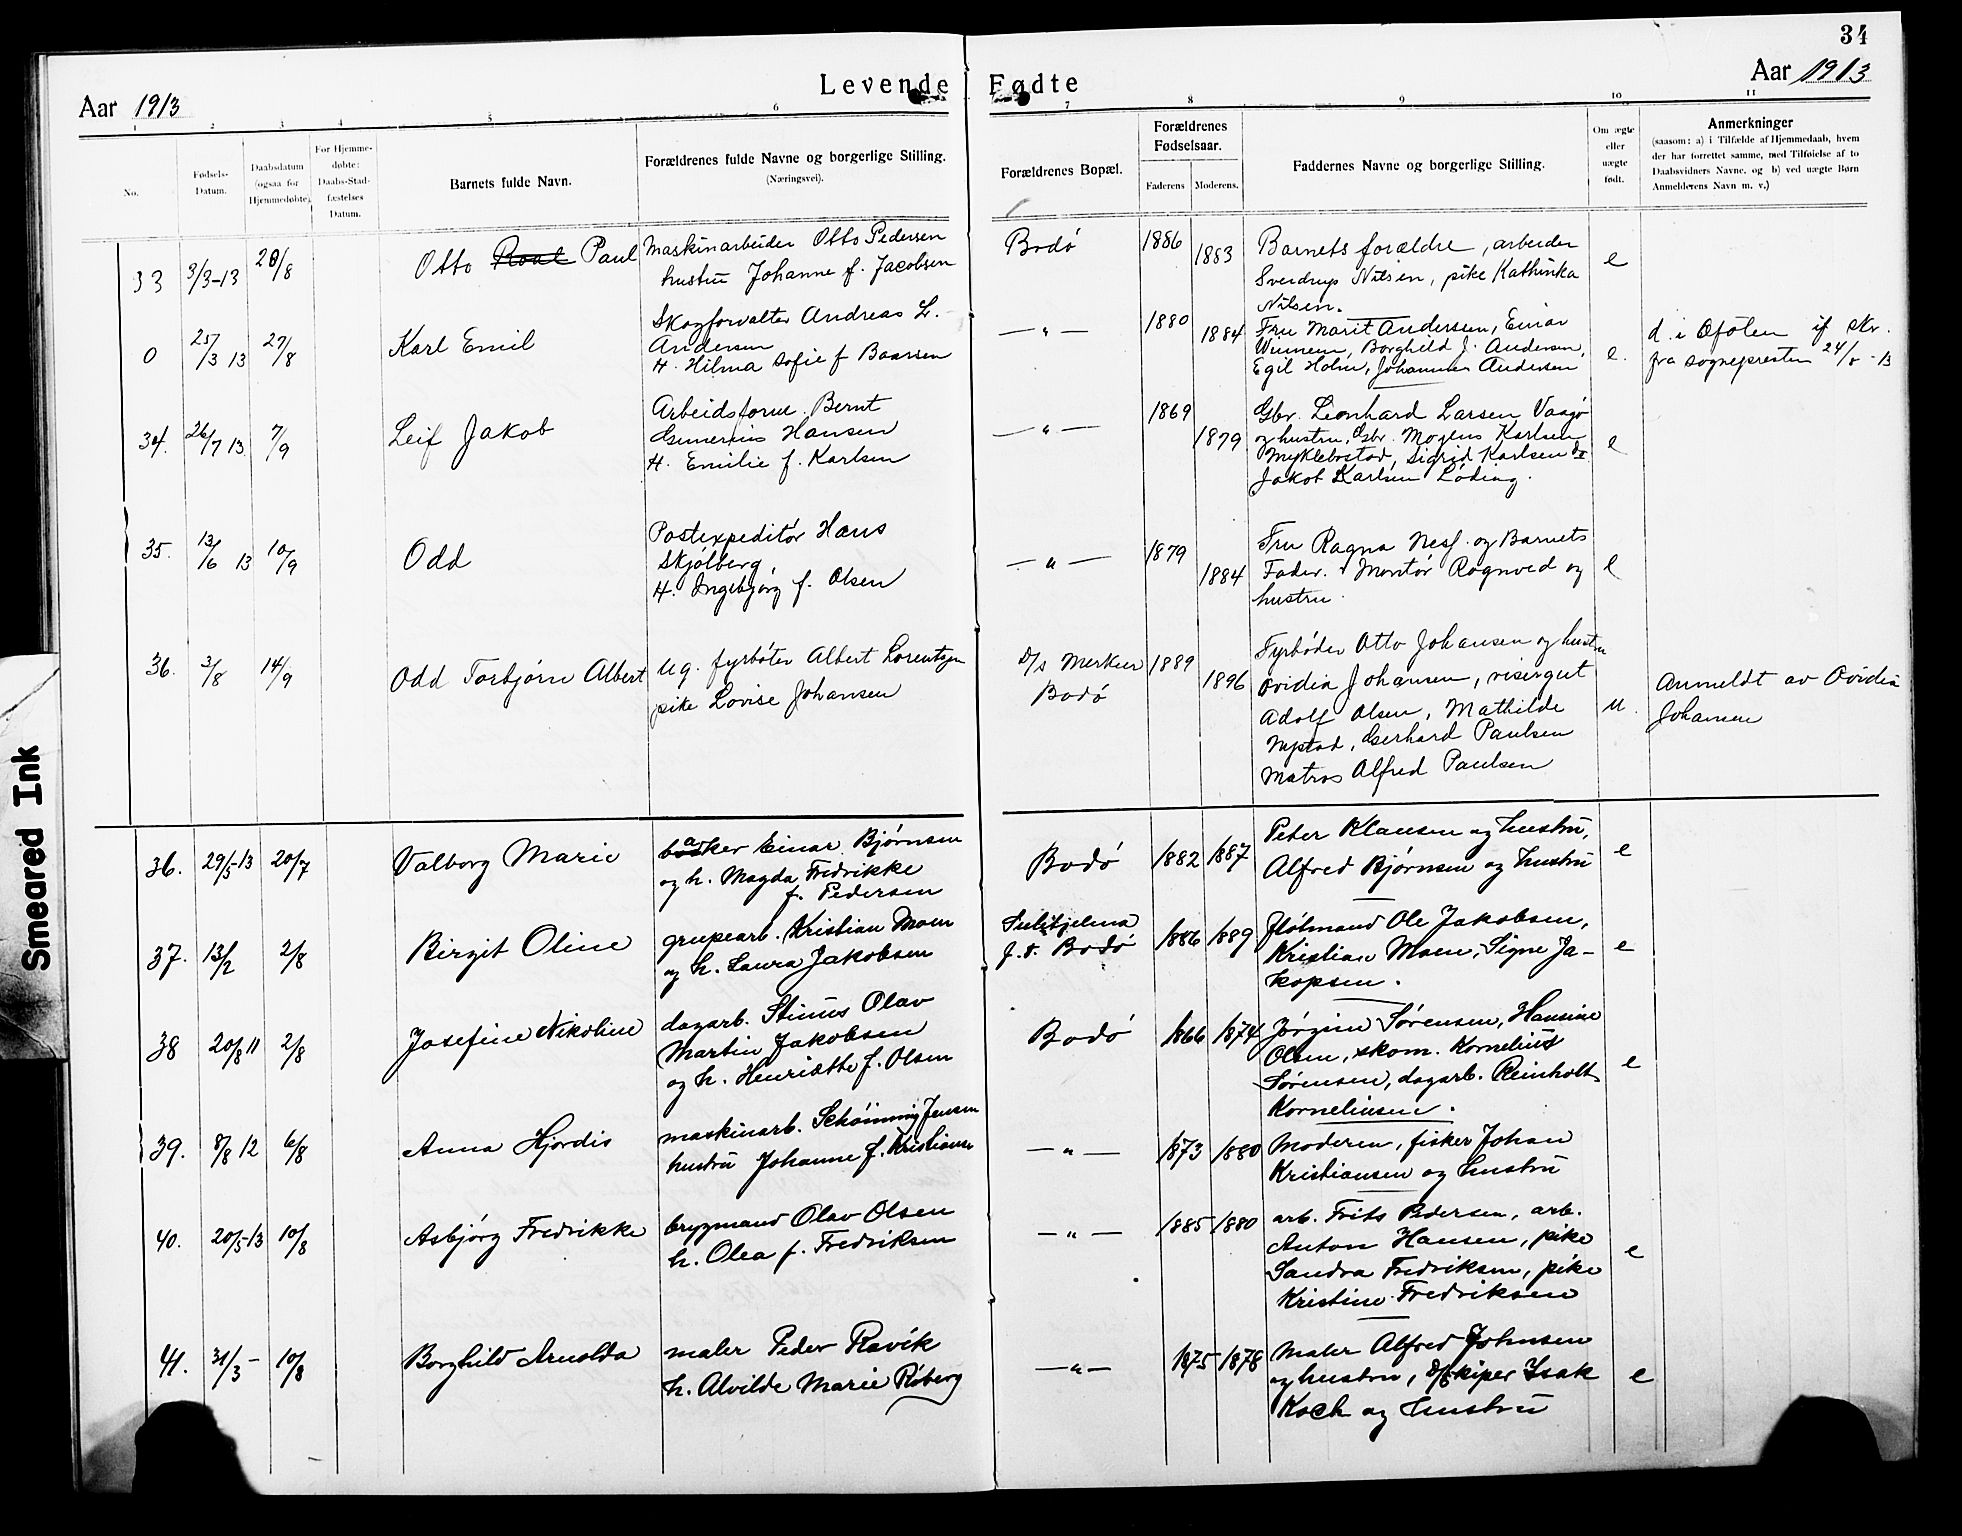 34
Levende Fødte
Aar 1913
Aar 1913
1 2 3 4 5 6 7 8 9 10 11
No.
Fødsels-
Datum.
Daabsdatum
(ogsaa for
Hjemmedøbte).
For Hjemme-
døbte:
Daabs-Stad-
fæstelses
Datum.
Barnets fulde Navn.
Forældrenes fulde Navne og borgerlige Stilling.
(Næringsvei).
Forældrenes Bopæl.
Forældrenes
Fødselsaar.
Faderens Moderens.
Faddernes Navne og borgerlige Stilling.
Om ægte
eller
uægte
født.
Anmerkninger
(saasom: a) i Tilfælde af Hjemmedaab, hvem
der har forrettet samme, med Tilføielse af to
Daabsvidners Navne, og b) ved uægte Børn
Anmelderens Navn m. v.)
33 3/3-13 20/8 Otto Roal Paul
Maskinarbeider Otto Pedersen
hustru Johanne f. Jacobsen
Bodø 1886 1883
Barnets forældre, arbeider
Sverdrup Nilsen, pike Kathinka
Nilsen.
e
0 25/3 13 27/8 Karl Emil
Skogforvalter Andreas L.
Andersen
H. Hilma Sofie f Baarsen
—"— 1880 1884
Fru Marit Andersen, Einar
Winnem, Borghild J. Andersen,
Egil Holm, Johannes Andersen
e.
d. i Ofoten if skr.
fra sognepresten 24/8-13
34. 26/7 13 7/9 Leif Jakob
Arbeidsform. Bernt
Gunerius Hansen
H. Emilie f. Karlsen
—"— 1869 1879
Gbr. Leonhard Larsen Vaagø
og hustru, Gbr. Mogens Karlsen
Myklebostad, Sigrid Karlsen
Jakob Karlsen Løding.
e
35. 13/6 13 10/9 Odd
Postexpeditør Hans
Skjølberg
H. Ingebjørg f. Olsen
—"— 1879 1884
Fru Ragna Nesf. og Barnets
Fader. Montør Rognved og
hustru.
e
36. 3/8 14/9 Odd Torbjørn Albert
Ug. fyrbøter Albert Lorentzen
pike Lovise Johansen
D/s Merkur
Bodø
1889 1896
Fyrbøder Otto Johansen og hustru
Ovidia Johansen, visergut
Adolf Olsen, Mathilde
Nystad, Gerhard Paulsen
Matros Alfred Paulsen
u.
Anmeldt av Ovidia
Johansen
36. 29/5-13 20/7 Valborg Marie
basker Einar Bjørnsen
og h. Magda Fredrikke
f. Pedersen
Bodø 1882 1887
Peter Klausen og hustru,
Alfred Bjørnsen og hustru
e
37. 13/2 2/8 Birgit Oline
grupearb. Kristian Moen
og h. Laura Jakobsen
Sulitjelma
f.t. Bodø
1886 1889
Fløtmand Ole Jakobsen,
Kristian Moen, Signe Ja-
kopsen.
e
38 20/8 11 2/8 Josefine Nikoline
dagarb. Stinus Olav
Martin Jakobsen
og h. Henriette f. Olsen
Bodø 1866 1874
Jørgine Sørensen, Hansine
Olsen, skom. Kornelius
Sørensen, dagarb. Reinholt
Korneliusen.
e
39. 8/8 12 6/8 Anna Hjordis
maskinarb. Schønning Jensen
hustru Johanne f. Kristiansen
—"— 1873 1880
Moderen, fisker Johan
Kristiansen og hustru
40. 20/5-13 10/8 Asbjørg Fredrikke
brygmand Olav Olsen
h. Olea f. Fredriksen
—"— 1885 1880
arb. Frits Pedersen, arb.
Anton Hansen, pike
Sandra Fredriksen, pike
Kristine Fredriksen
e
41. 31/3- 10/8 Borghild Arnolda
maler Peder Ravik
h. Alvilde Marie Røberg
—"— 1875 1878
Maler Alfred Johnsen
og hustru, skiper Isak
Koch og hustru
e
Smeared Ink